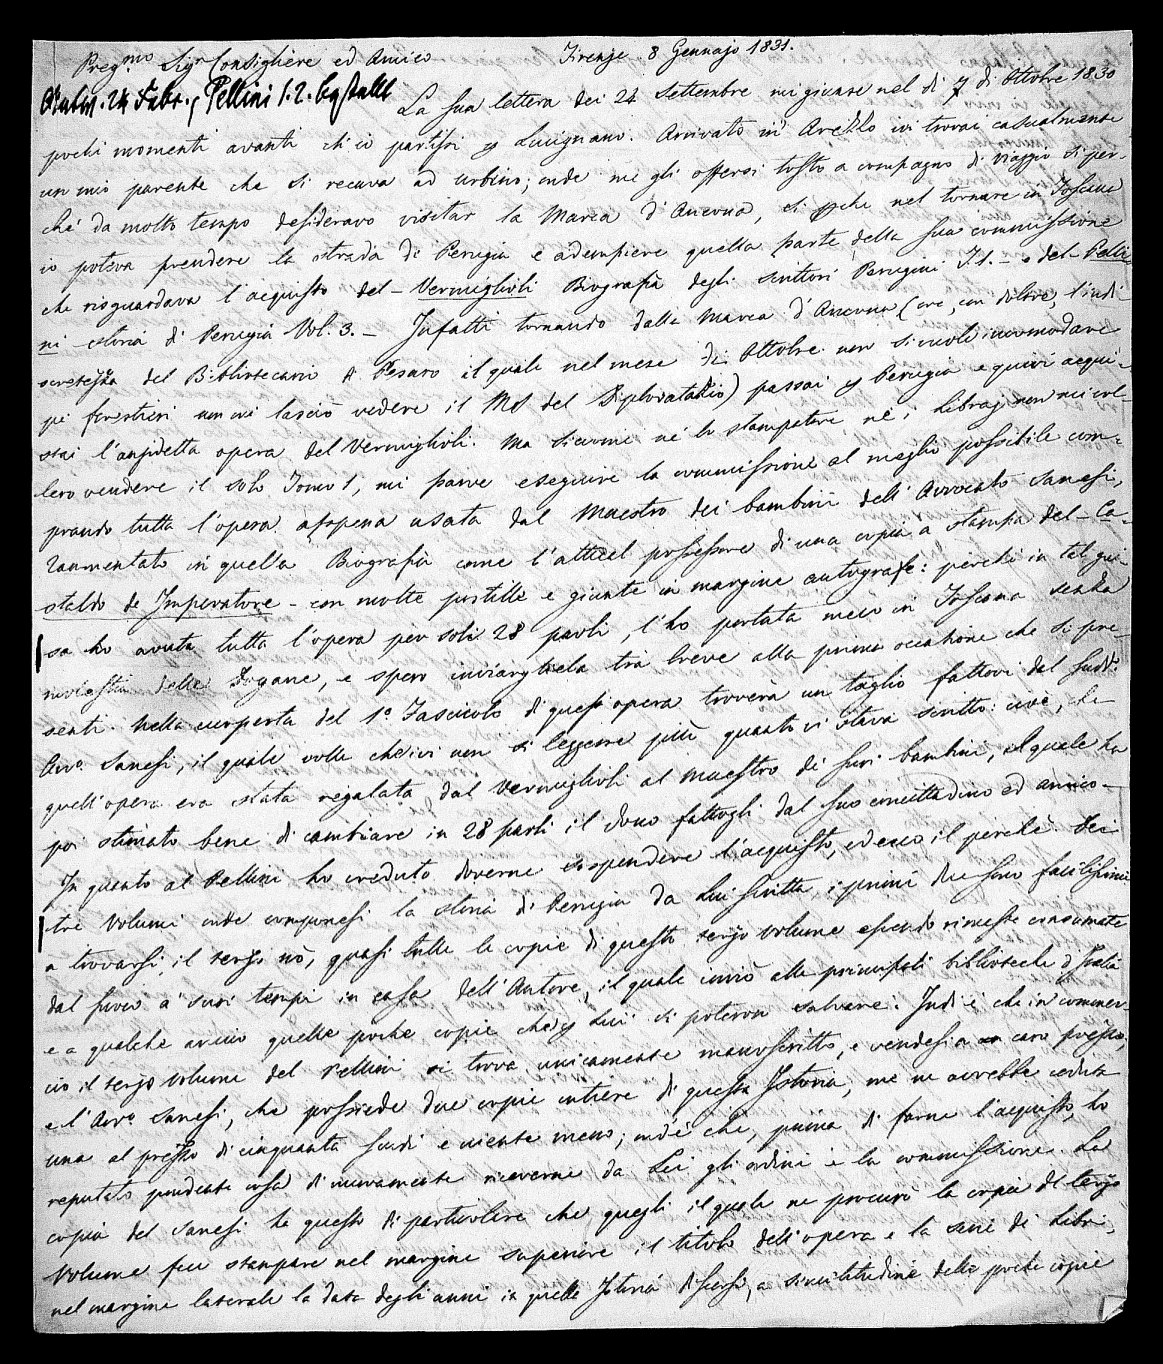 Preg.mo Sigr Consigliere ed Amico Firenze 8 Gennajo 1831.
24 Febr. Pellini 1.2. La sua lettera dei 24 Settembre mi giunse nel dì 7 di Ottobre 1830
pochi momenti avanti ch'io partissi p Lucignano. Arrivato in Arezzo ivi trovai casualmente
un mio parente che si recava ad Urbino; onde me gli offersi tosto a compagno di viaggio sì per-
chè da molto tempo desideravo visitar la Marca d'Ancona, sì pche nel tornare in Toscana
io poteva prendere la strada di Perugia e adempiere quella parte della sua commissione
che risguardava l'acquisto del - Vermiglioli Biografia degli Scrittori Perugini T. 1. - e del - Pelli-
ni storia di Perugia Vol. 3. - Infatti tornando dalla Marca d'Ancona (ove, con dolore, l'indi-
scretezza del Bibliotecario A Pesaro il quale nel mese di Ottobre non si vuole incomodare
pei forestieri non mi lasciò vedere il MS del Diplovatazio) passai p Perugia e quivi acqui-
stai l'anzidetta opera del Vermiglioli. Ma siccome nè lo stampatore nè i Libraj non mi vol-
lero vendere il solo Tomo 1, mi parve eseguire la commissione al meglio possibile com-
prando tutta l'opera appena usata dal Maestro dei bambini dell'Avvocato Sanesi,
rammentato in quella Biografia come l'attual possessore di una copia a stampa del - Ca-
staldo de Imperatore - con molte postille e giunte in margine autografe: perchè in tal gui-
sa ho avuta tutta l'opera per soli 28 paoli, l'ho portata meco in Toscana senza
molestia delle Dogane, e spero inviargliela tra breve alla prima occasione che si pre-
senti. Nella coperta del 1.o Fascicolo di quest'opera troverà un taglio fattovi dal sudd.o
Avv.o Sanesi, il quale volle che ivi non si leggesse più quanto vi stava scritto: cioè, che
quell'opera era stata regalata dal Vermiglioli al Maestro de' suoi bambini, il quale ha
poi stimato bene di cambiare in 28 paoli il dono fattogli dal suo concittadino ed amico -
In quanto al Pellini ho creduto doverne sospendere l'acquisto, ed ecco il perchè. Dei
tre Volumi onde componesi la storia di Perugia da Lui scritta, i primi due sono facilissimi
a trovarsi, il terzo nò, quasi tutte le copie di questo terzo volume essendo rimaste consumate
dal fuoco a' suoi tempi in casa dell'Autore, il quale inviò alle principali biblioteche d'Italia
e a qualche amico quelle poche copie che p Lui si poteron salvare. Indi è che in commer-
cio il terzo volume del Pellini si trova unicamente manoscritto, e vendesi a caro prezzo;
e l'Avv.o Sanesi, che possiede due copie intiere di questa Istoria, me ne avrebbe ceduta
una al prezzo di cinquanta scudi e niente meno; ond'è che, prima di farne l'acquisto, ho
reputato prudente cosa di nuovamente riceverne da Lei gli ordini e la commissione. La
copia del Sanesi ha questo di particolare che quegli il quale ne procurò la copia del terzo
Volume fece stampare nel margine superiore il titolo dell'opera e la serie di Libri,
nel margine laterale la data degli anni in quella Istoria discorsi, a similitudine delle poche copie